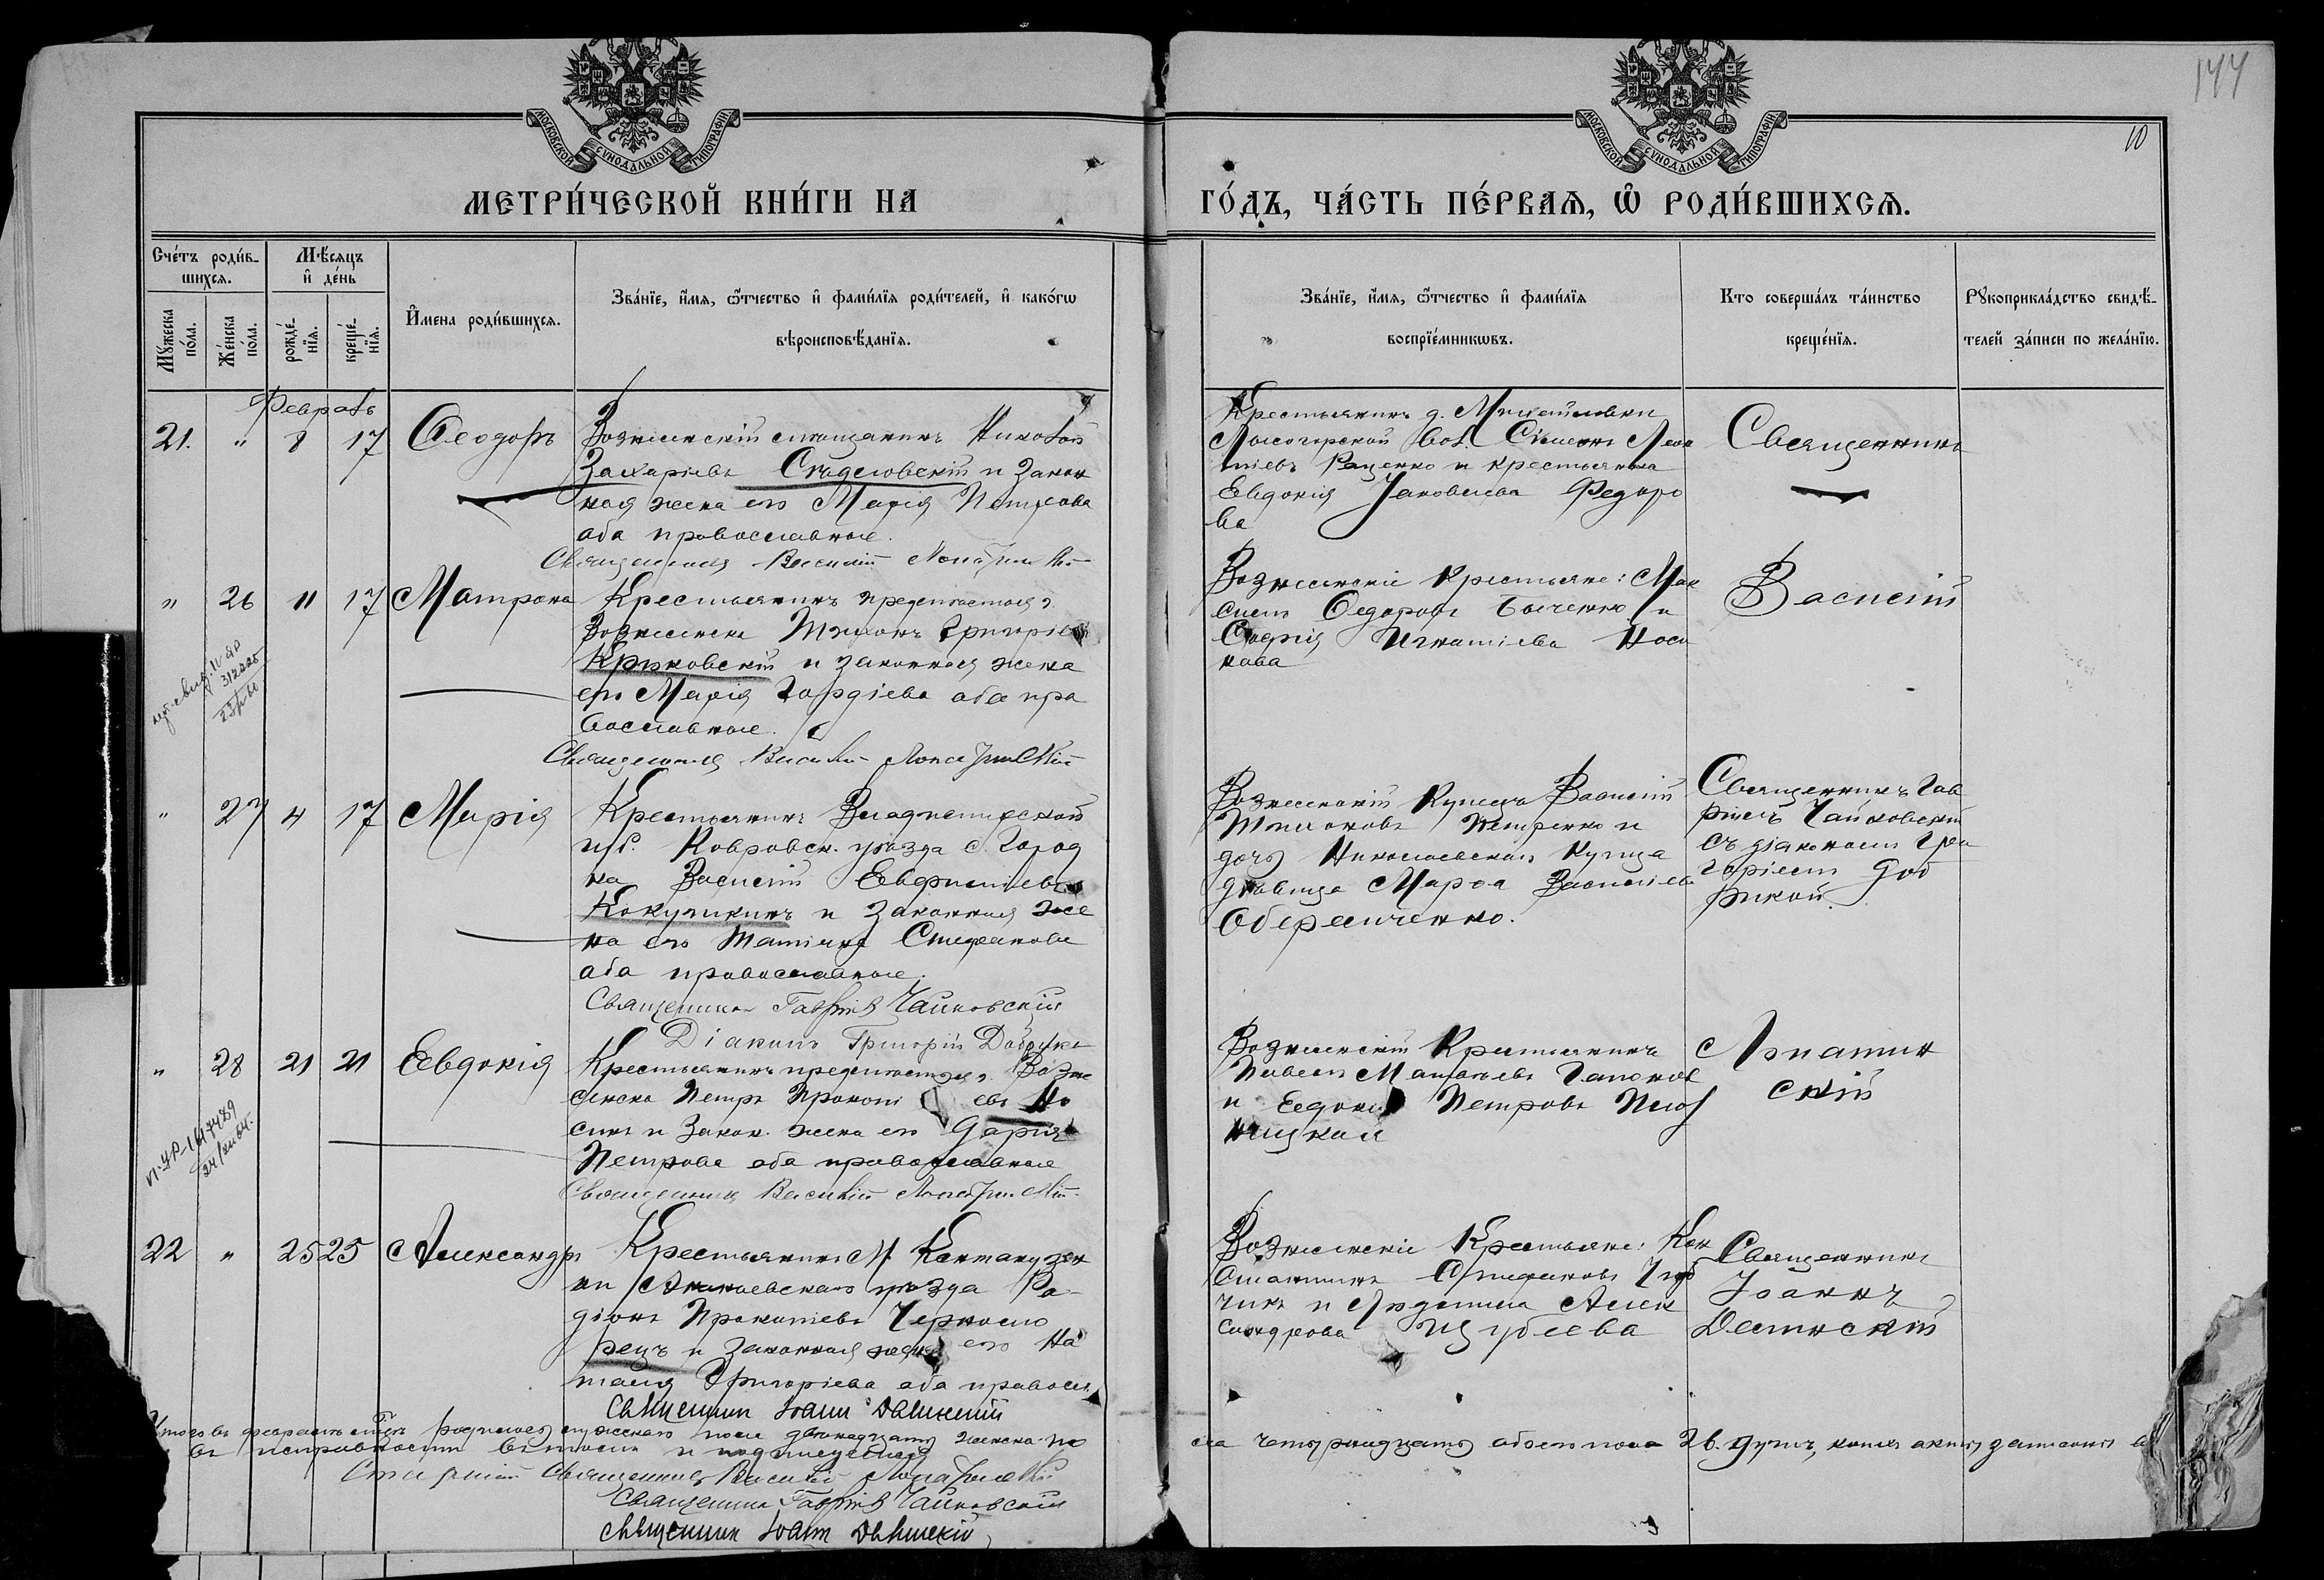 144
10
МОСКОВСКОЙ СѴНОДАЛЬНОЙ ТИПОГРАФІИ
МОСКОВСКОЙ СѴНОДАЛЬНОЙ ТИПОГРАФІИ
МЕТРИ́ЧЕСКОЙ КНИ́ГИ НА
ГО́ДЪ, ЧА́СТЬ ПЕ́РВАѦ, Ѡ҆ РОДИ́ВШИХСѦ.
Сче́тъ роди́в-
шихсѧ.
Мꙋ́жеска по́ла.
Же́нска по́ла.
Мѣ́сѧцъ
и҆ де́нь
рожде́-
нїѧ.
креще́-
нїѧ.
И҆мена роди́вшихсѧ.
Зва́нїе, и҆́мѧ, ѻ҆́тчество и҆ фами́лїѧ роди́телей, и҆ како́гѡ
вѣроисповѣ́данїѧ.
Зва́нїе, и҆́мѧ, ѻ҆́тчество и҆ фами́лїѧ
воспрїе́мникѡвъ.
Кто соверша́лъ та́инство
креще́нїѧ.
Рꙋкоприкла́дство свидѣ́-
телей за́писи по жела́нїю.
Февраль
21. " 8 17 Ѳеодоръ
Вознесенскій мѣщанинъ Николай
Захаріевъ Стаделовскій и закон
ная жена его Марія Петрова
оба православные.
Священникъ Василій Лопатинскій
Крестьянинъ д. Михайловки
Лысогорской вол. Сѵмеонъ Леон
тіевъ Раценко и крестьянка
Евдокія Іаковлева Федоро
ва
Священникъ
" 26 11 17 Матрона
Крестьянинъ предмѣстья г.
Вознесенска Тимонъ Григоріевъ
Крыжовскій и законная жена
его Марія Гордіева оба пра
вославные.
Священникъ Василій Лопатинскій
Вознесенскіе Крестьяне: Мак
симъ Ѳедоровъ Быченко и
Софія Игнатіева Носи
кова
Василій
" 27 4 17 Марія
Крестьянинъ Владимірской
губ. Ковровск. уѣзда с. Город
ка Василій Евфиміевъ
Кокушкинъ и законная же
на его Татіана Стефанова
оба православные.
Священникъ Гавріилъ Чайковскій
Діаконъ Григорій Добрика
Вознесенскій Купецъ Василій
Тимоновъ Петренко и
дочь Николаевскаго купца
дѣвица Марѳа Василіева
Оберемченко.
Священникъ Гав
ріилъ Чайковскій
съ діакономъ Гри
горіемъ Доб
рикой.
" 28 21 21 Евдокія
Крестьянинъ предмѣстья г. Возне
сенска Петръ Прокопіевъ Но
синъ и закон. жена его Дарія
Петрова оба православные
Священникъ Василій Лопатинскій
Вознесенскій Крестьянинъ
Павелъ Матвѣевъ Гапонов
и Евдокія Петрова
Лопатин
скій
22 " 25 25 Александръ
Крестьянинъ М. Кантакузен
ки Ананьевскаго уѣзда Ро-
діонъ Прокопіевъ Черномо
рецъ и законная жена его На
талія Григоріева оба правосл.
Священникъ Іоаннъ
Вознесенскіе Крестьяне: Кон
стантинъ Стефановъ
чикъ и Людмила Алек
сандрова Шубаева
Священникъ
Іоаннъ
Итого въ февралѣ мѣсяцѣ родилось мужеска пола двѣнадцать женска по
ла четырнадцать обоего пола 26 душъ, коихъ акты записаны
въ исправности въ томъ и подписуемся
Старшій Священникъ Василій Лопатинскій
Священникъ Гавріилъ Чайковскій
Священникъ Іоаннъ